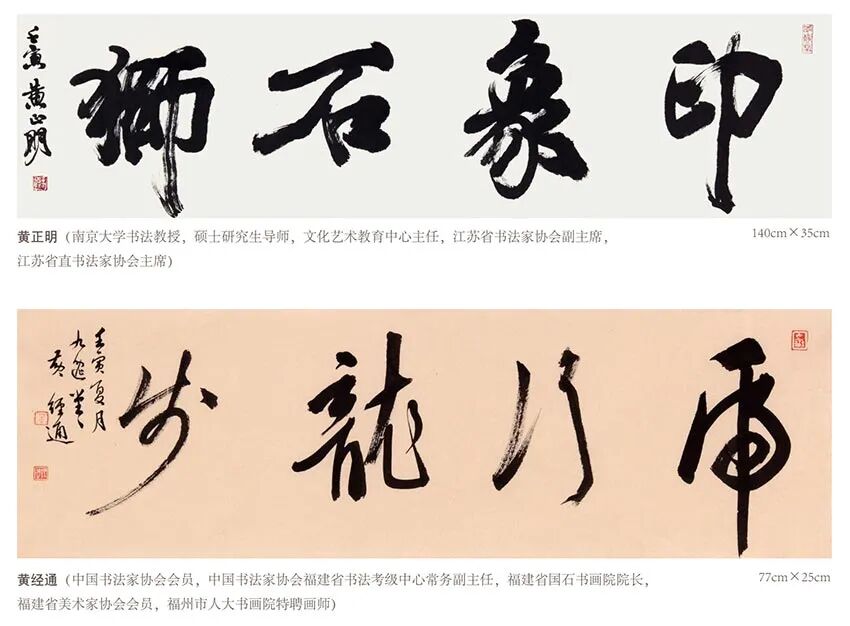 印象石獅
壬寅 黄正明
黄正明（南京大学书法教授，硕士研究生导师，文化艺术教育中心主任，江苏省书法家协会副主席，
江苏省直书法家协会主席）
140cm×35cm
虎行龍步
壬寅夏月
九
黄經通
黄经通（中国书法家协会会员，中国书法家协会福建省书法考级中心常务副主任，福建省国石书画院院长，
福建省美术家协会会员，福州市人大书画院特聘画师）
77cm×25cm